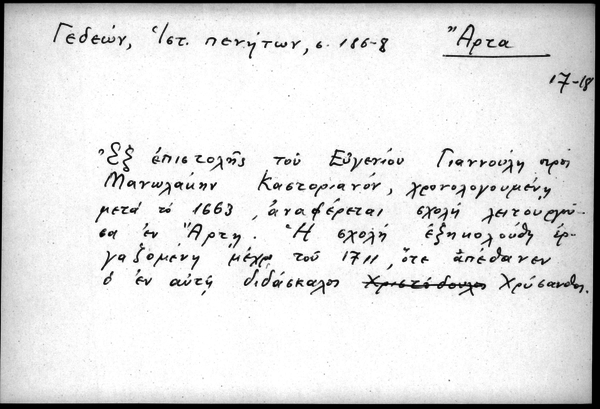 Γεδεών, Ἱστ. πενήτων, σ. 186-8 Ἄρτα
17-18
Ἐξ ἐπιστολῆς τοῦ Εὐγενίου Γιαννούλη πρὸς
Μανωλάκην Καστοριανόν, χρονολογουμένη
μετά τό 1663, ἀναφέρεται σχολή λειτουργοῦ-
σα ἐν Ἄρτῃ. Ἡ σχολή ἐξηκολούθη ἐρ-
γαζομένη μέχρι τοῦ 1711, ὅτε ἀπέθανεν
ὁ ἐν αὐτῇ διδάσκαλος Χριστόδουλος Χρύσανθος.